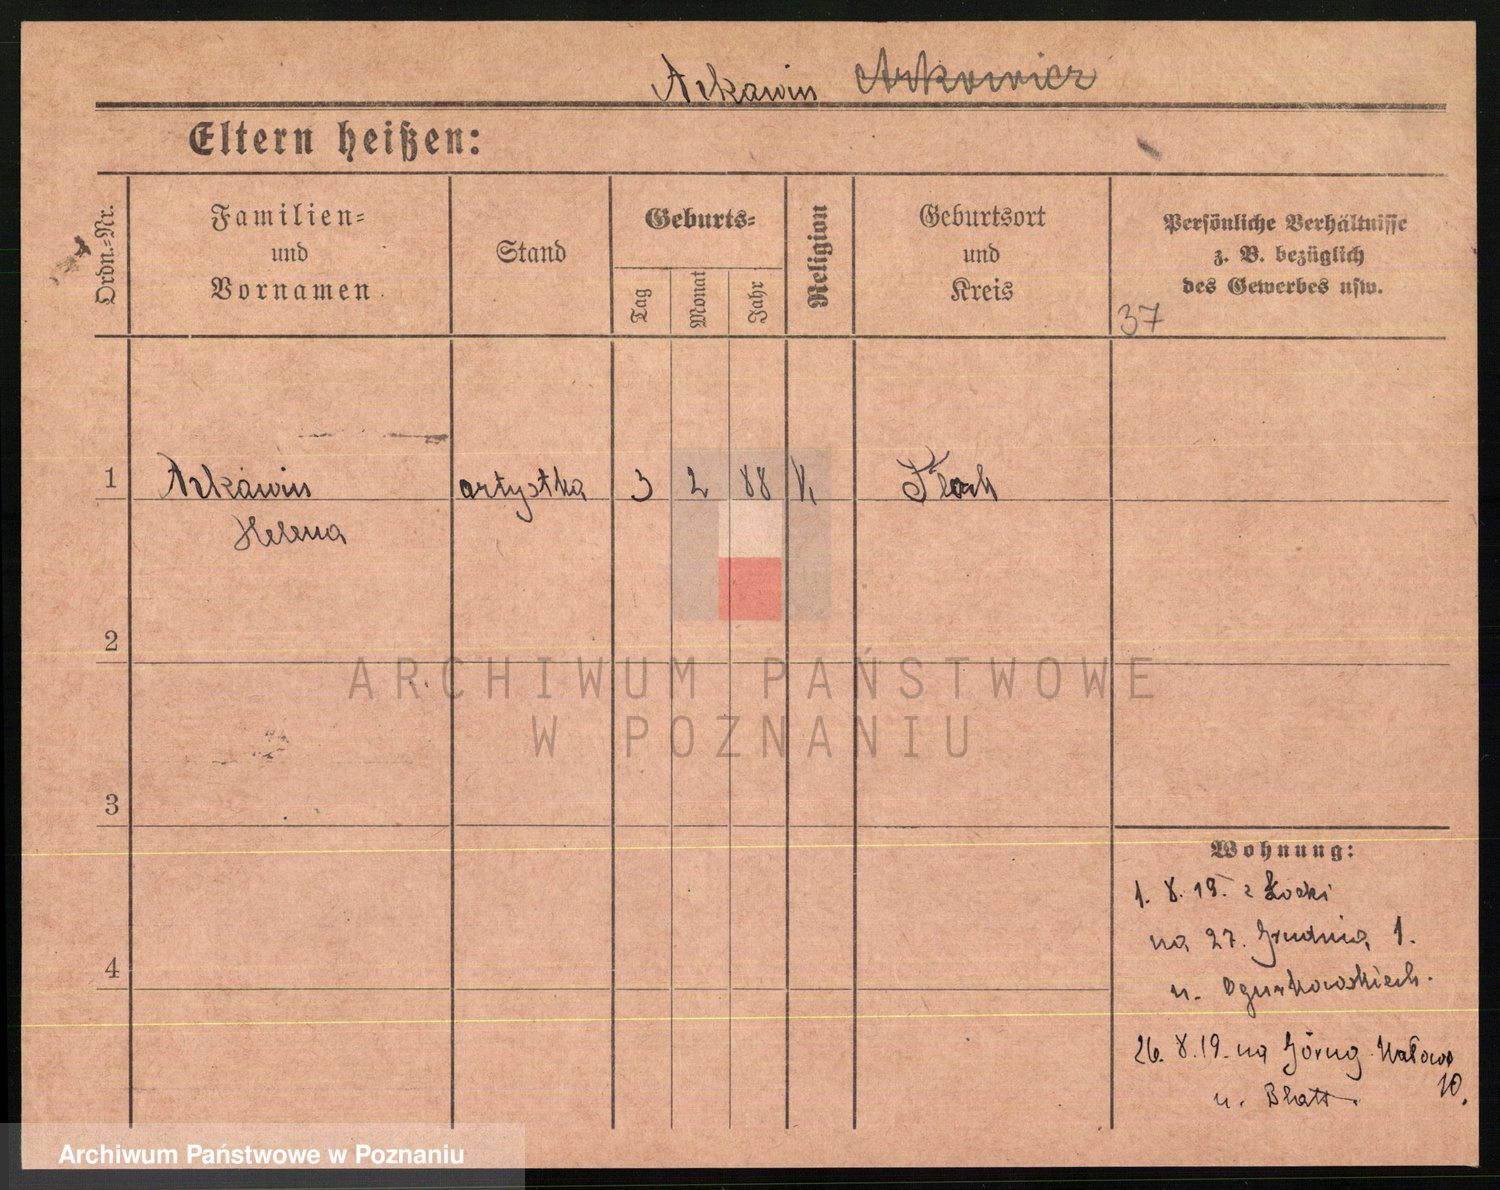 Arkawin Arkowicz
Eltern heißen:
Ordn.-Nr.
Familien-
und
Vornamen
Stand
Geburts-
Tag
Monat
Jahr
Religion
Geburtsort
und
Kreis
Persönliche Verhältnisse
z. B. bezüglich
des Gewerbes usw.
37
1
Arkawin
Helena
artystka
3
2
88
2
3
4
Wohnung:
1. 8. 19. z
na 27. Grudnia 1.
u. Ogurkowskiech.
26. 8. 19. na Górną Wałowo
10.
u. Blatt.
ARCHIWUM PAŃSTWOWE
W POZNANIU
Archiwum Państwowe w Poznaniu